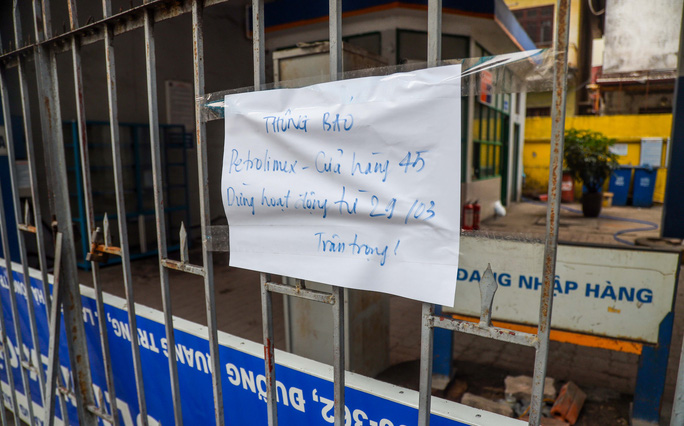 THÔNG BÁO
Petrolimex - Cửa hàng 45
Dừng hoạt động từ 21/03
Trân trọng!
ĐANG NHẬP HÀNG
362, ĐƯỜNG QUANG TRUNG,